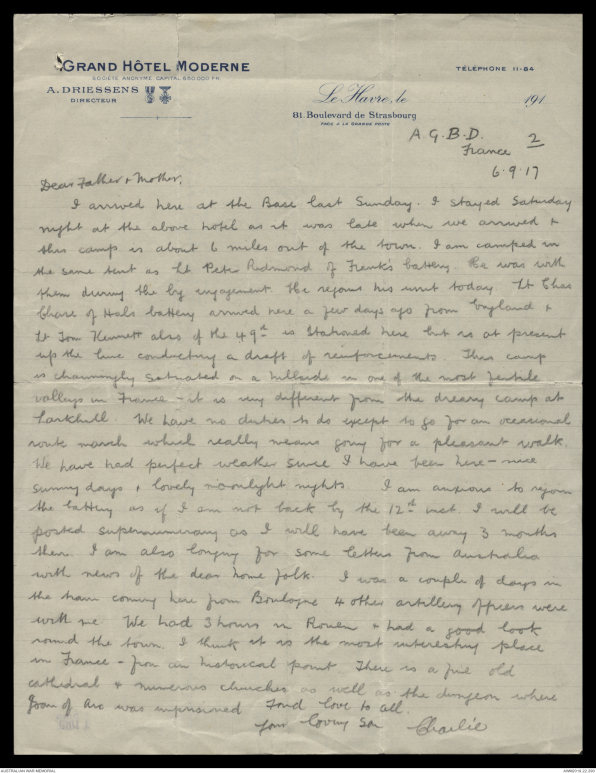 GRAND HÔTEL MODERNE
SOCIÉTÉ ANONYME CAPITAL 650.000 FR.
A. DRIESSENS
DIRECTEUR
TÉLÉPHONE 11-84
Le Havre, le 191
81. Boulevard de Strasbourg
FACE A LA GRANDE POSTE
A.G.B.D. 2
France
6.9.17
Dear Father & Mother,
I arrived here at the Base last Sunday. I stayed Saturday
night at the above hotel as it was late when we arrived &
this camp is about 6 miles out of the town. I am camped in
the same tent as Lt Peter Redmond of Frank's battery. He was with
them during the big engagement. He rejoins his unit today. Lt Chas
Clare of Hals battery arrived here a few days ago from England &
Lt Tom Kennett also of the 49th is stationed here but is at present
up the line conducting a draft of reinforcements. This camp
is charmingly satuated on a hillside in one of the most fertile
valleys in France - it is very different from the dreary camp at
Larkhill. We have no duties to do except to go for an occasional
route march which really means going for a pleasant walk.
We have had perfect weather since I have been here - nice
sunny days & lovely moonlight nights. I am anxious to rejoin
the battery as if I am not back by the 12th inst. I will be
posted supernumerary as I will have been away 3 months
then. I am also longing for some letters from Australia
with news of the dear home folk. I was a couple of days in
the train coming here from Boulogne 4 other artillery officers were
with me. We had 3 hours in Rouen & had a good look
round the town. I think it is the most interesting place
in France - from an historical point There is a fine old
cathedral & numerous churches as well as the dungeon where
Joan of Arc was imprisoned Fond love to all.
Your loving son
Charlie
AUSTRALIAN WAR MEMORIAL